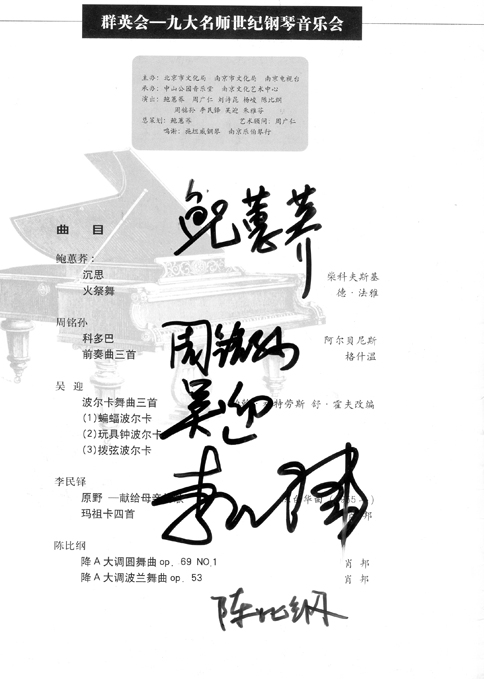 群英会—九大名师世纪钢琴音乐会
主办：北京市文化局 南京市文化局 南京电视台
承办：中山公园音乐堂 南京文化艺术中心
演出：鲍蕙荞 周广仁 刘诗昆 杨峻 陈比纲
周铭孙 李民铎 吴迎 朱雅芬
总策划：鲍蕙荞 艺术顾问：周广仁
鸣谢：施坦威钢琴 南京乐伯琴行
鲍蕙荞
曲 目
鲍蕙荞：
沉思 柴科夫斯基
火祭舞 德·法雅
周铭孙
科多巴 阿尔贝尼斯
前奏曲三首 格什温
周铭孙
吴 迎
波尔卡舞曲三首 特劳斯 舒·霍夫改编
(1)蝙蝠波尔卡
(2)玩具钟波尔卡
(3)拨弦波尔卡
吴迎
李民铎
原野 —献给母亲
玛祖卡四首 邦
李民铎
陈比纲
降A大调圆舞曲op. 69 NO.1 肖 邦
降A大调波兰舞曲op. 53 肖 邦
陈比纲